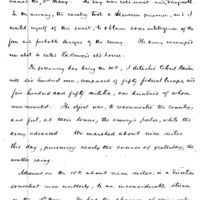 named the, 9th Navy. The day was cold, moist and disagreeable.
In the morning, the cavalry took a Shawnese prisoner, and I
availed myself of this event, to obtain some intelligence of the
force and probable designs of the enemy. The army encamped
one at what is called Kathawa's old towns.
The following day being the 10th, I detached Colonel Hardin
with six hundred men, composed of fifty federal troops and
five hundred and fifty militia, one hundred of whom
were mounted. The object was, to reconnoitre the country,
and feel, at their towns, the enemy's pulse, while the
army advanced. We marched about nine miles
this day, pursuing nearly the course of yesterday, the
weather rainy.
Advanced on the 15th about nine miles, in a direction
somewhat more northerly, to an inconsiderable stream